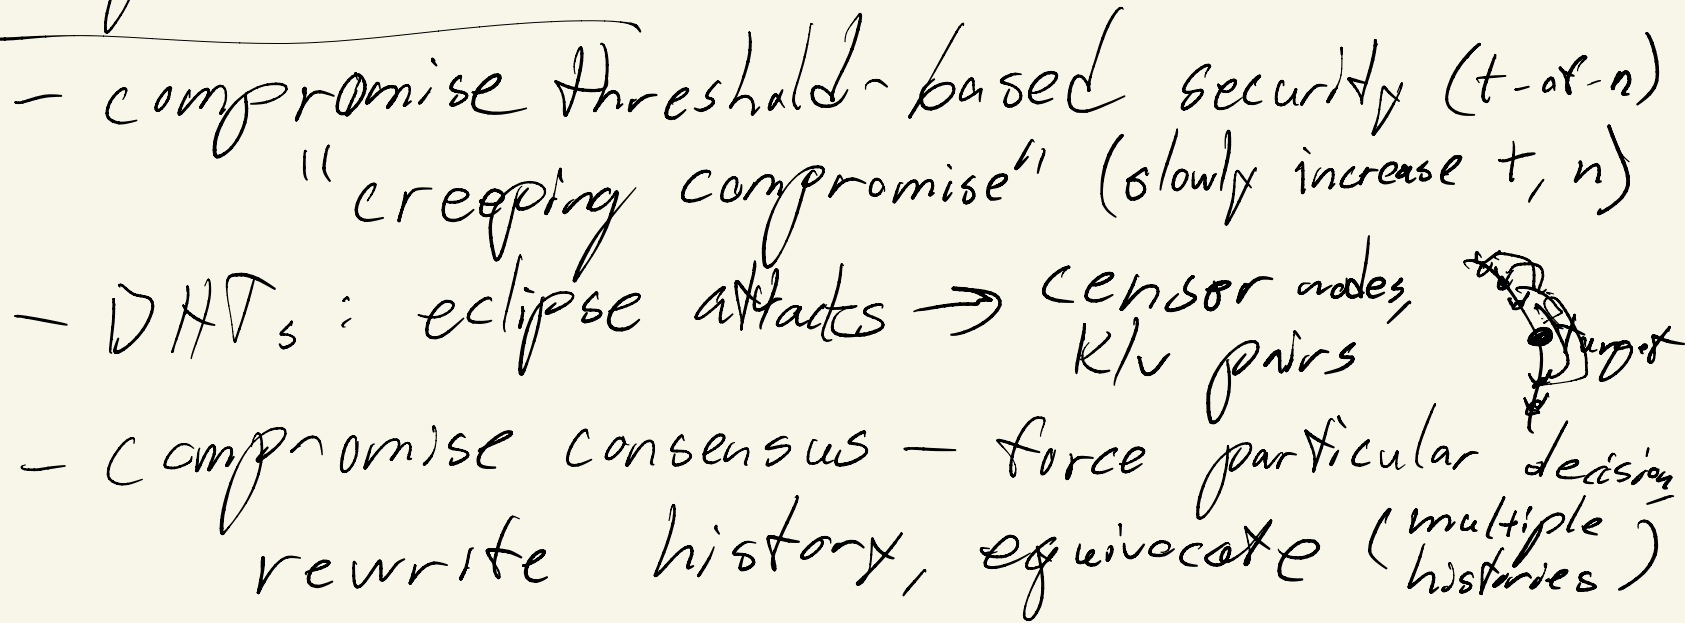 - compromise threshold-based security (t-of-n)
"creeping compromise" (slowly increase t, n)
- DHTs : eclipse attacks → censor nodes,
K/v pairs
target
- compromise consensus - force particular decision,
rewrite history, equivocate (multiple
histories)